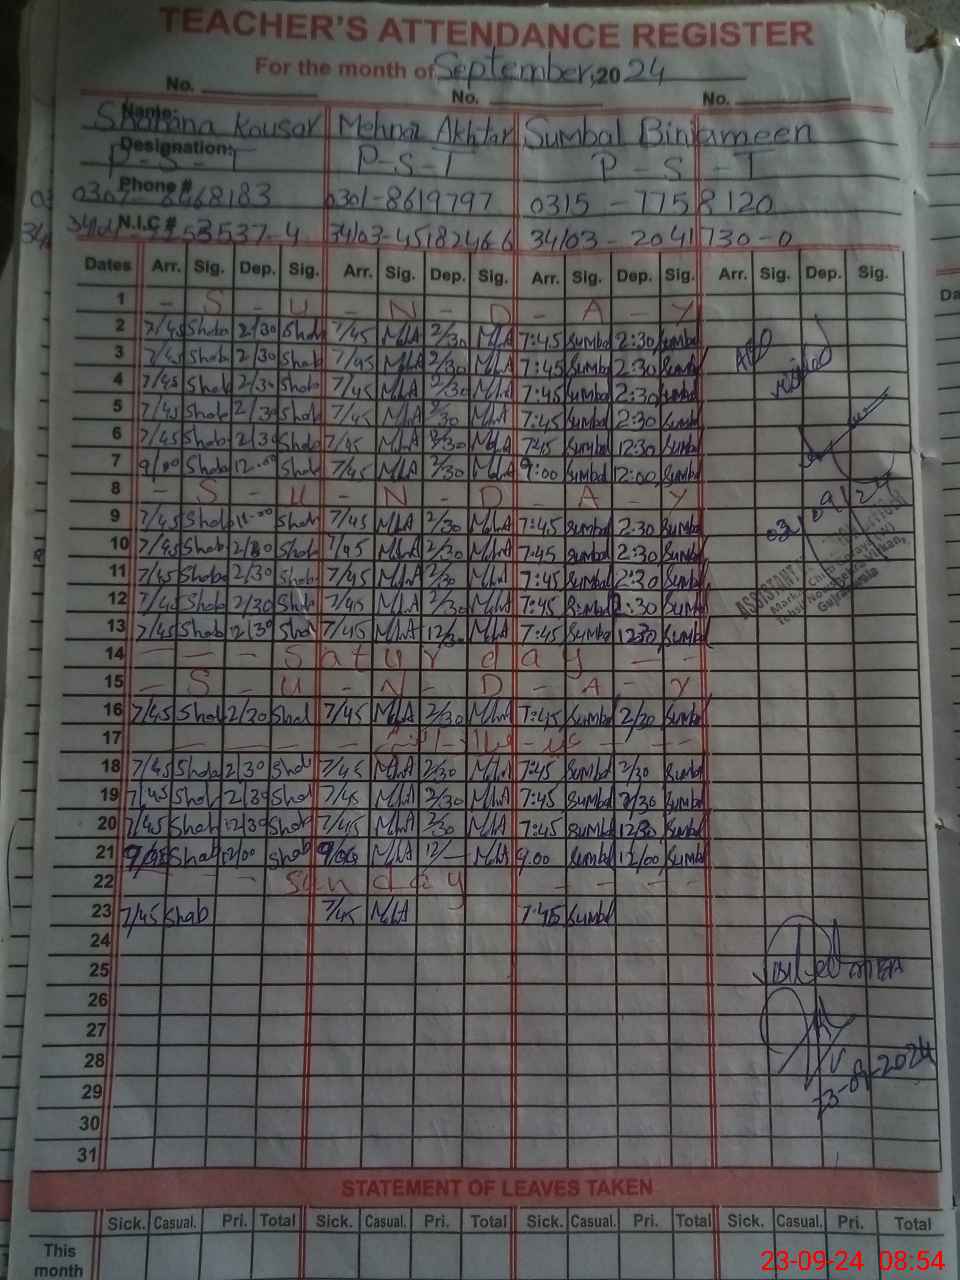 TEACHER'S ATTENDANCE REGISTER
For the month of September, 2024
No. No. No.
Name: Shabana Kousar Mehnaz Akhtar Sumbal Binyameen
Designation: P-S-T P-S-T P-S-T
Phone # 0301-8619797 0315-7758120
N.I.C # 34103-4518246-6 34103-2041730-0
Dates Arr. Sig. Dep. Sig. Arr. Sig. Dep. Sig. Arr. Sig. Dep. Sig. Arr. Sig. Dep. Sig.
1 - S - U - N - D - A - Y
2 7/45 Shab 2/30 Shab 7/45 MhA 2/30 MhA 7:45 Sumbal 2:30 Sumbal
3 7/45 Shab 2/30 Shab 7/45 MhA 2/30 MhA 7:45 Sumbal 2:30 Sumbal AEO
4 7/45 Shab 2/30 Shab 7/45 MhA 2/30 MhA 7:45 Sumbal 2:30 Sumbal visited
5 7/45 Shab 2/30 Shab 7/45 MhA 2/30 MhA 7:45 Sumbal 2:30 Sumbal
6 7/45 Shab 12/30 Shab 7/45 MhA 12/30 MhA 7:45 Sumbal 12:30 Sumbal
7 9/00 Shab 12:00 Shab 7/45 MhA 2/30 MhA 9:00 Sumbal 12:00 Sumbal
8 - S - U - N - D - A - Y
9 7/45 Shab Shab 7/45 MhA 2/30 MhA 7:45 Sumbal 2:30 Sumbal 03/09/24
10 7/45 Shab 2/30 Shab 7/45 MhA 2/30 MhA 7:45 Sumbal 2:30 Sumbal
11 7/45 Shab 2/30 Shab 7/45 MhA 2/30 MhA 7:45 Sumbal 2:30 Sumbal
12 7/45 Shab 2/30 Shab 7/45 MhA 2/30 MhA 7:45 Sumbal 2:30 Sumbal
ASSISTANT
Gujranwala
13 7/45 Shab 12/30 Shab 7/45 MhA 12/30 MhA 7:45 Sumbal 1230 Sumbal
14 - - - Saturday - -
15 - S - U - N - D - A - Y
16 7/45 Shab 2/30 Shab 7/45 MhA 2/30 MhA 7:45 Sumbal 2/30 Sumbal
17
18 7/45 Shab 2/30 Shab 7/45 MhA 2/30 MhA 7:45 Sumbal 2/30 Sumbal
19 7/45 Shab 2/30 Shab 7/45 MhA 2/30 MhA 7:45 Sumbal 2/30 Sumbal
20 7/45 Shab 12/30 Shab 7/45 MhA MhA 7:45 Sumbal 1230 Sumbal
21 9/00 Shab 12/00 Shab 9/00 MhA 12/- MhA 9:00 Sumbal 12/00 Sumbal
22 - - - Sunday - - - -
23 7/45 Shab 7/45 MhA 7:45 Sumbal
24
25 Visited
26
27
28 23-09-2024
29
30
31
STATEMENT OF LEAVES TAKEN
Sick. Casual. Pri. Total Sick. Casual. Pri. Total Sick. Casual. Pri. Total Sick. Casual. Pri. Total
This month
23-09-24 08:54